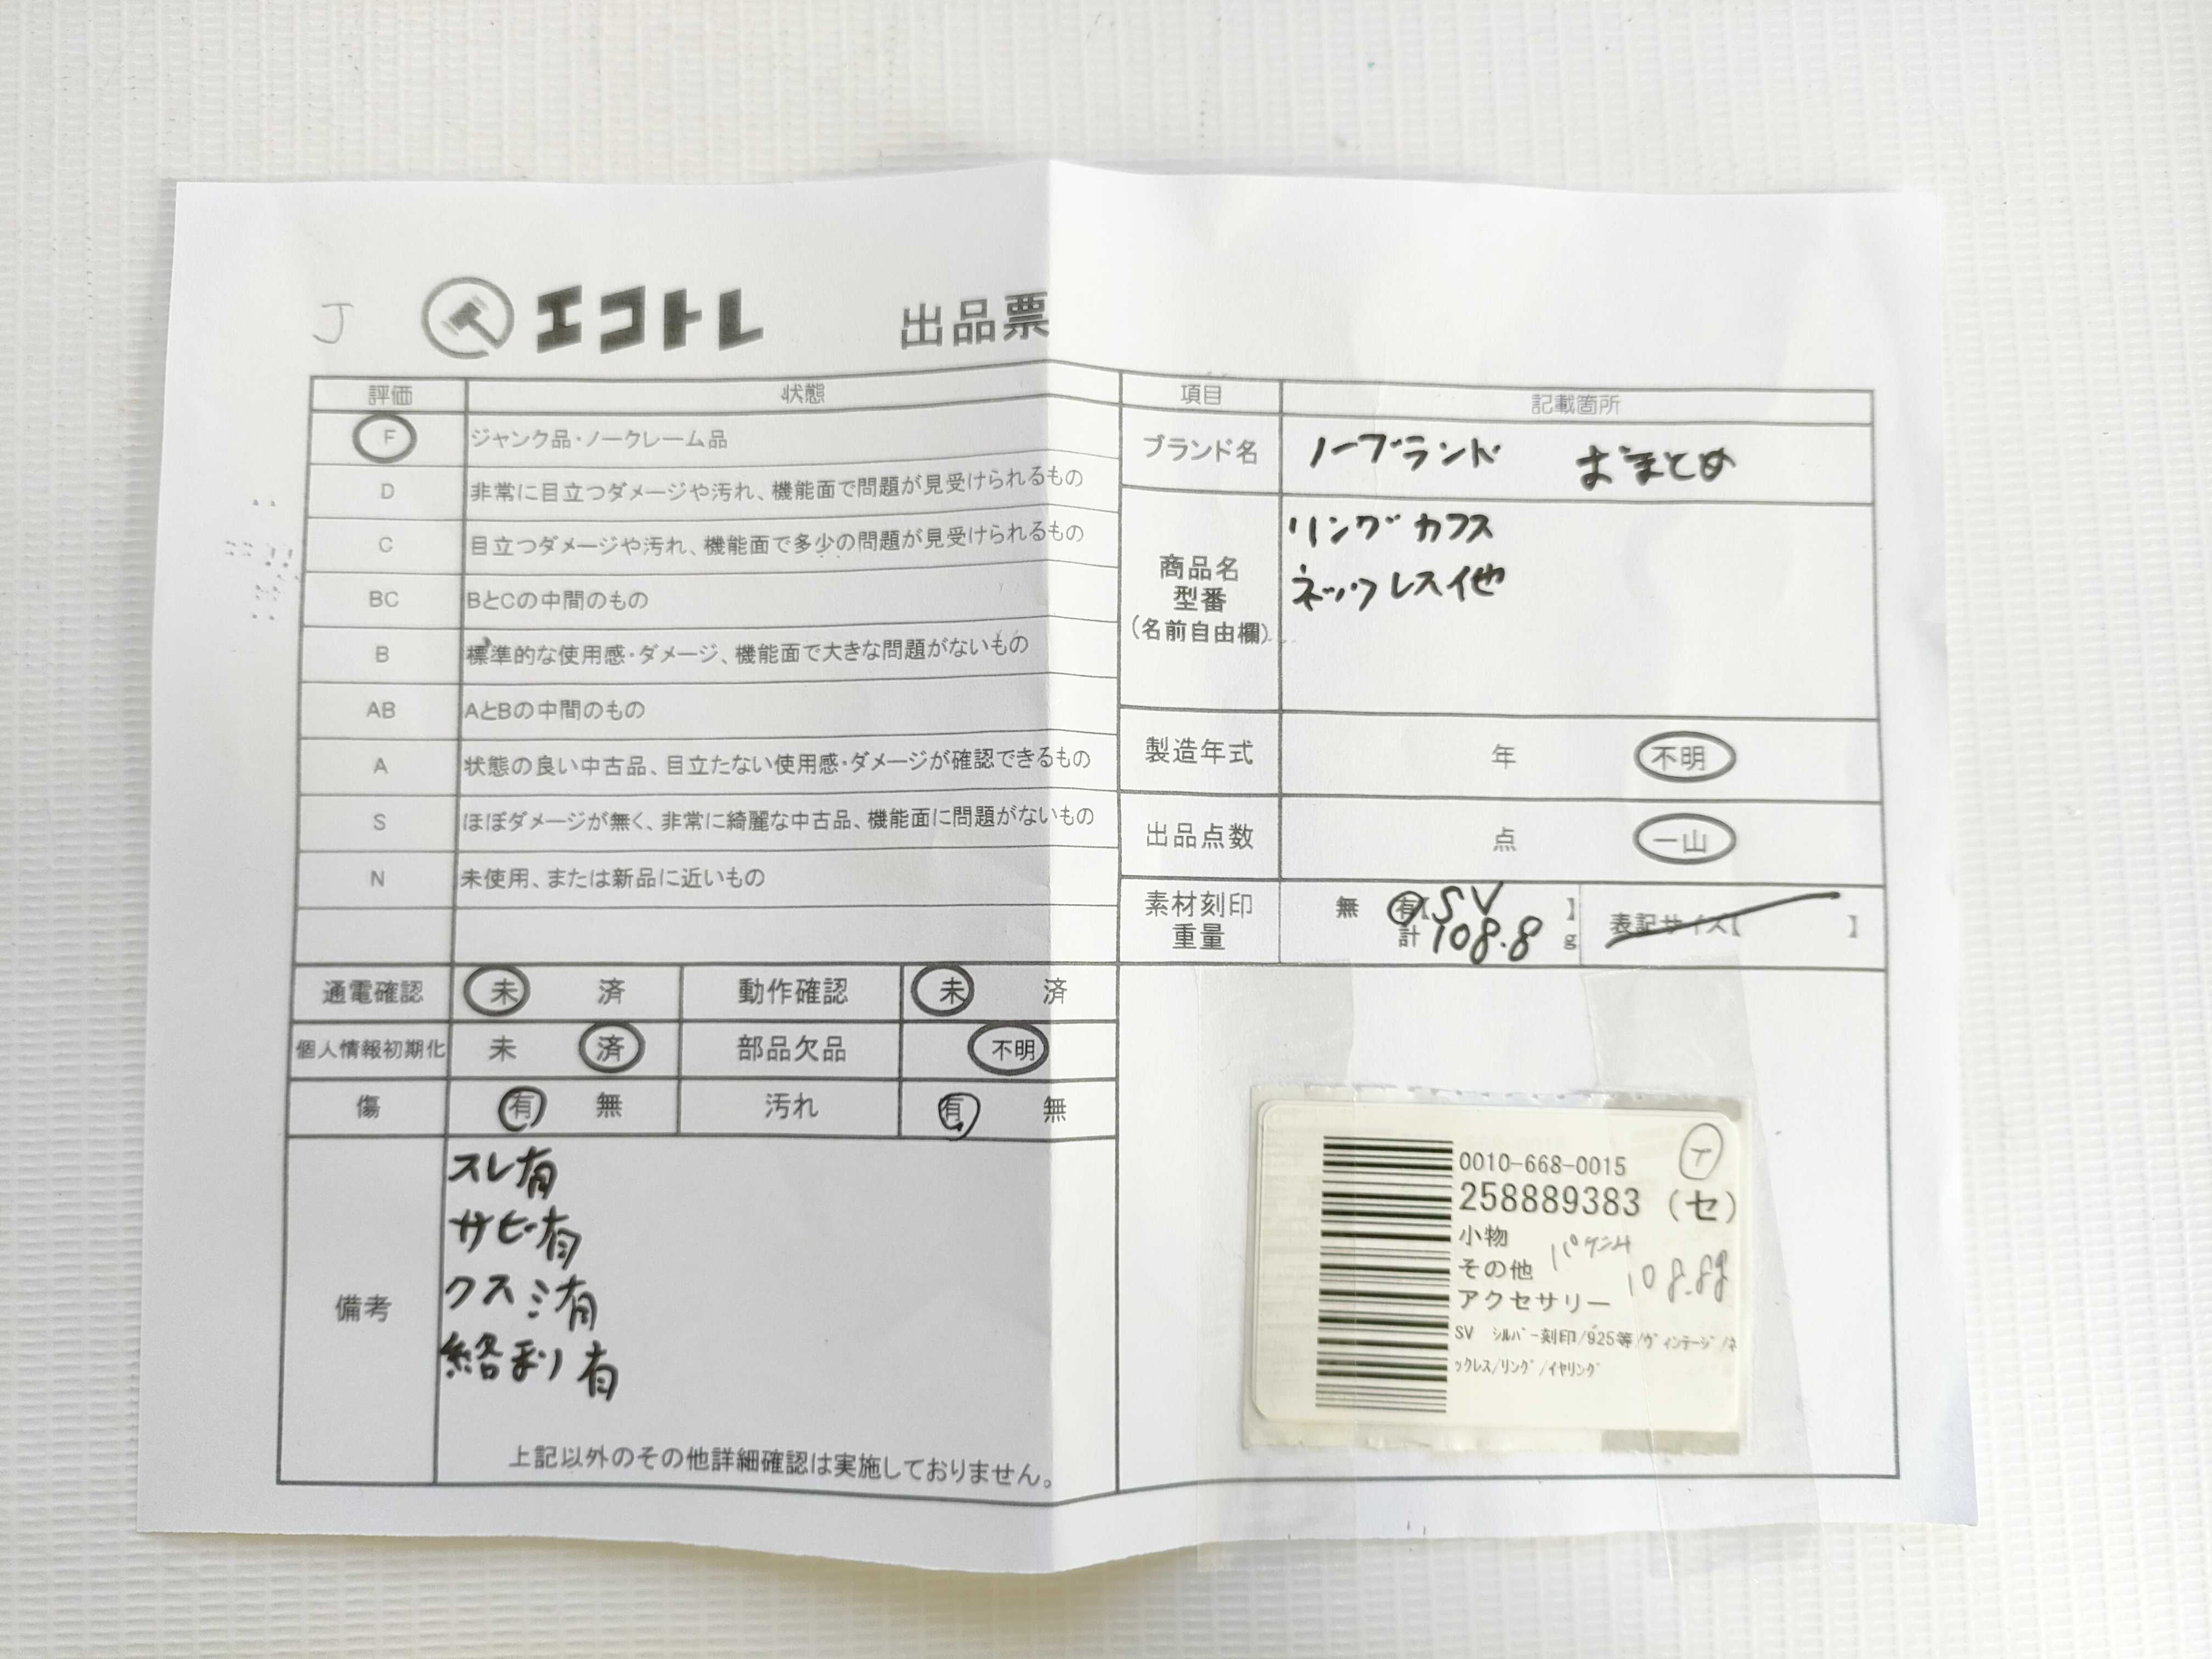 J エコトレ 出品票
評価 状態
F ジャンク品・ノークレーム品
D 非常に目立つダメージや汚れ、機能面で問題が見受けられるもの
C 目立つダメージや汚れ、機能面で多少の問題が見受けられるもの
BC BとCの中間のもの
B 標準的な使用感・ダメージ、機能面で大きな問題がないもの
AB AとBの中間のもの
A 状態の良い中古品、目立たない使用感・ダメージが確認できるもの
S ほぼダメージが無く、非常に綺麗な中古品、機能面に問題がないもの
N 未使用、または新品に近いもの
通電確認 未 済 動作確認 未 済
個人情報初期化 未 済 部品欠品 不明
傷 有 無 汚れ 有 無
備考
スレ有
サビ有
クスミ有
絡まり有
上記以外のその他詳細確認は実施しておりません。
項目 記載箇所
ブランド名 ノーブランド おまとめ
商品名
型番
(名前自由欄)
リング カフス
ネックレス他
製造年式 年 不明
出品点数 点 一山
素材刻印
重量
無 有【SV 】
計 108.8 g
表記サイズ【 】
0010-668-0015
258889383 (セ)
小物
その他
アクセサリー
108.8g
SV シルバー刻印/925等/ヴィンテージ/ネ
ックレス/リング/イヤリング